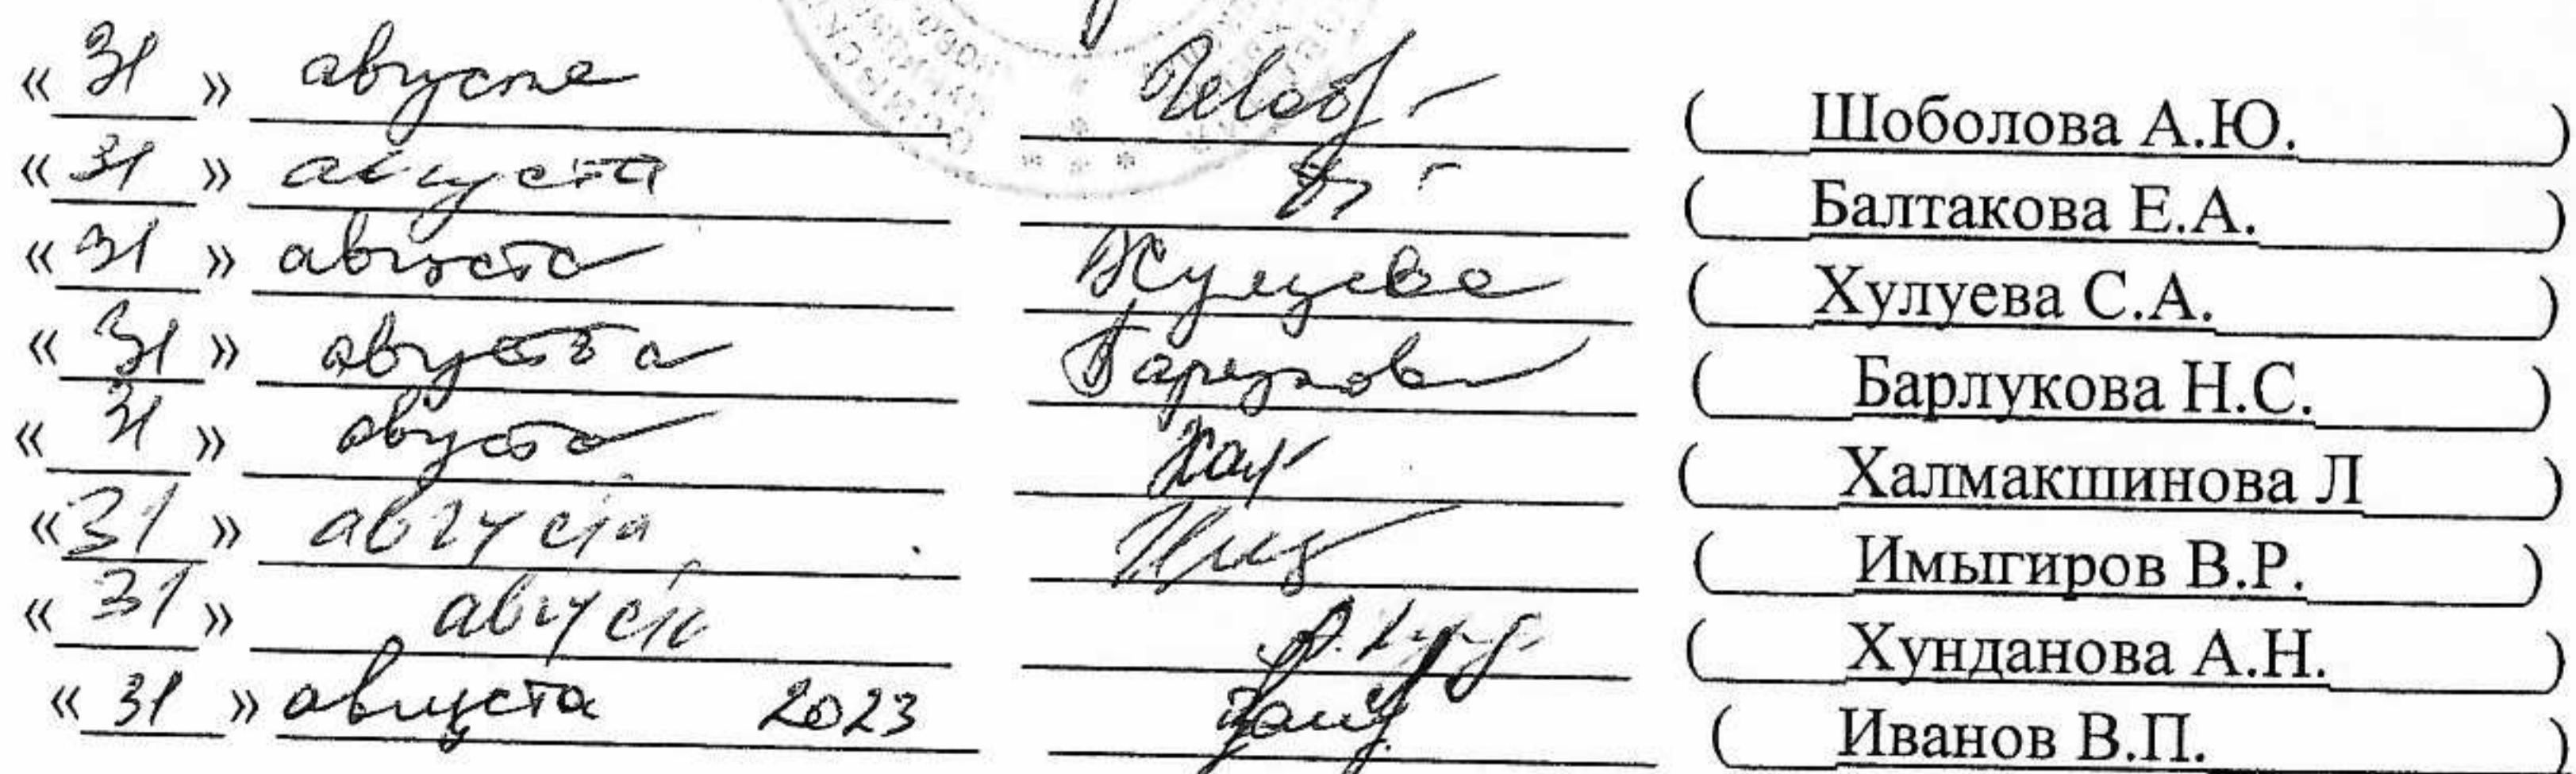 « 31 » августа ( Шоболова А.Ю. )
« 31 » августа ( Балтакова Е.А. )
« 31 » августа Хулуева ( Хулуева С.А. )
« 31 » августа ( Барлукова Н.С. )
« 31 » августа ( Халмакшинова Л )
« 31 » августа ( Имыгиров В.Р. )
« 31 » августа ( Хунданова А.Н. )
« 31 » августа 2023 ( Иванов В.П. )